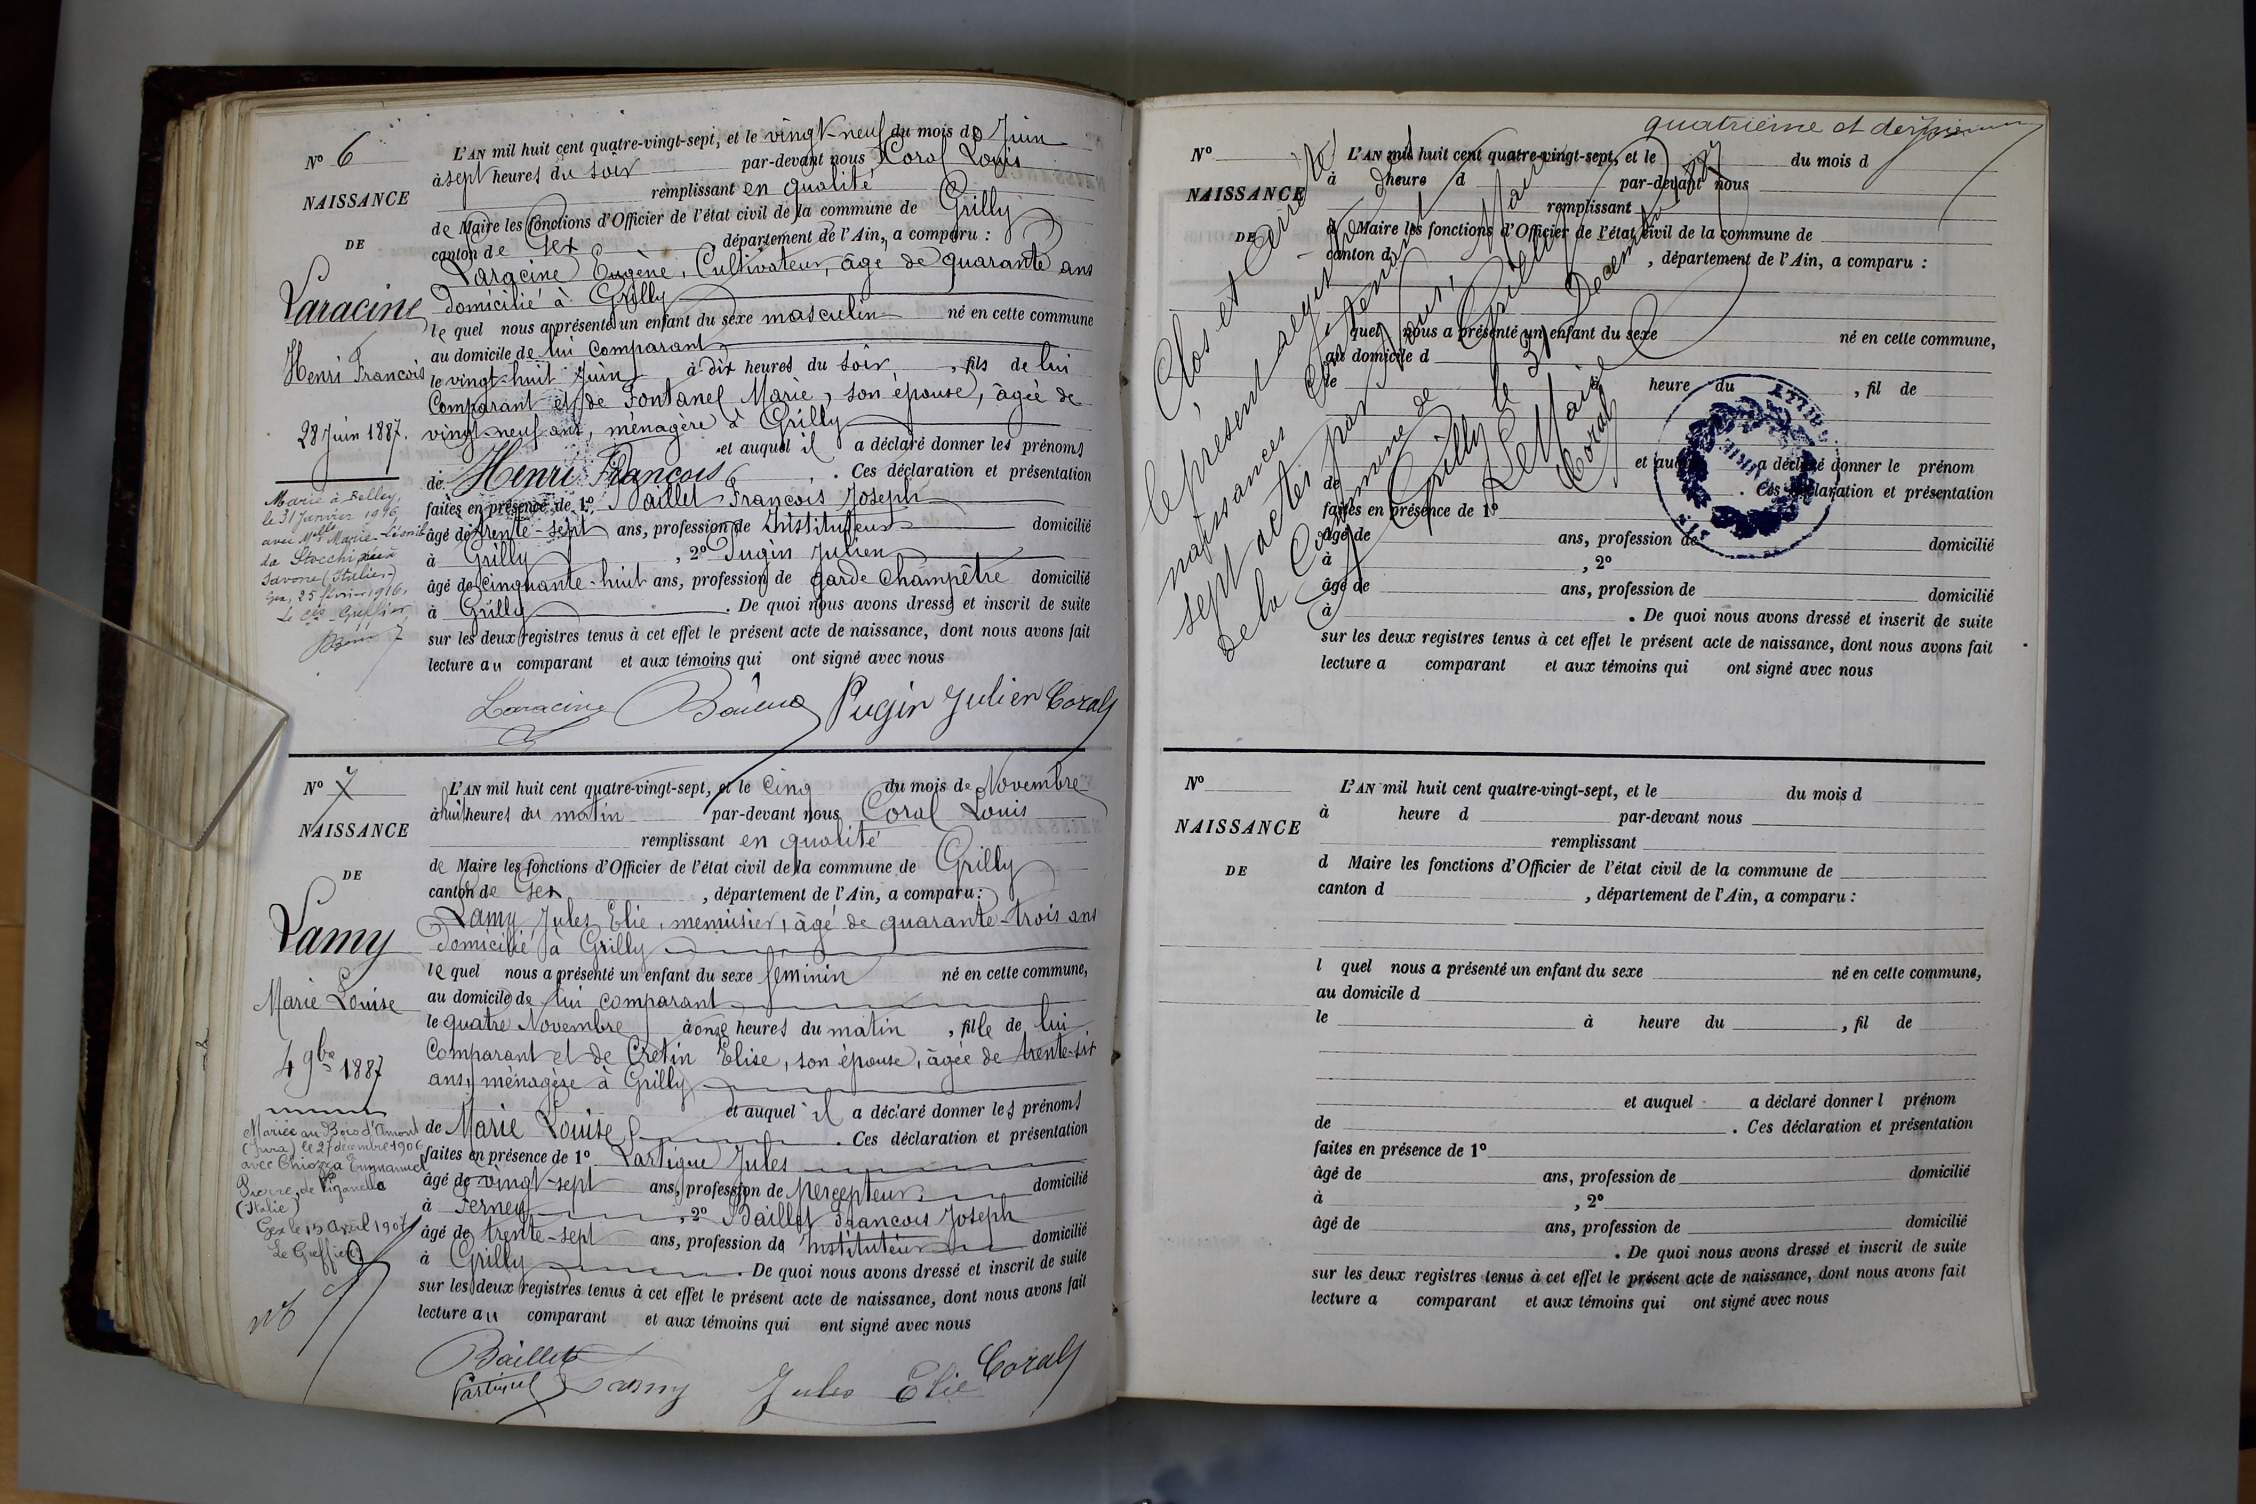 N° 6
NAISSANCE
DE
Laracine
Henri François
28 Juin 1887.
Marié à Belley,
le 31 Janvier 1916
avec Mlle Marie-Léonile
da Stocchi née à
Savone (Italie)
Gex, 25 février 1916,
Le Greffier
L'AN mil huit cent quatre-vingt-sept, et le vingt-neuf du mois de Juin
à sept heures du soir par-devant nous Coral Louis
remplissant en qualité
de Maire les fonctions d'Officier de l'état civil de la commune de Grilly
canton de Gex, département de l'Ain, a comparu :
Laracine Eugène, Cultivateur, âgé de quarante ans
domicilié à Grilly
le quel nous a présenté un enfant du sexe masculin né en cette commune
au domicile de lui comparant
le vingt-huit Juin à dix heures du soir, fils de lui
Comparant et de Fontanel Marie, son épouse, âgée de
vingt-neuf ans, ménagère à Grilly
et auquel il a déclaré donner les prénoms
de Henri François. Ces déclaration et présentation
faites en présence de 1° Baillet François Joseph
âgé de trente-sept ans, profession de Instituteur domicilié
à Grilly, 2° Pugin Julien
âgé de cinquante-huit ans, profession de garde champêtre domicilié
à Grilly. De quoi nous avons dressé et inscrit de suite
sur les deux registres tenus à cet effet le présent acte de naissance, dont nous avons fait
lecture au comparant et aux témoins qui ont signé avec nous
Laracine Pugin Julien Coral
N° 7
NAISSANCE
DE
Lamy
Marie Louise
4 9bre 1887
Mariée au Bois d'Amont
(Jura) le 27 décembre 1906
avec Chiozza Emmanuel
Pierre, de Viganella
(Italie)
Gex le 15 avril 1907
Le Greffier
L'AN mil huit cent quatre-vingt-sept, et le cinq du mois de Novembre
à huit heures du matin par-devant nous Coral Louis
remplissant en qualité
de Maire les fonctions d'Officier de l'état civil de la commune de Grilly
canton de Gex, département de l'Ain, a comparu :
Lamy Jules Elie, menuisier, âgé de quarante-trois ans
domicilié à Grilly
le quel nous a présenté un enfant du sexe féminin né en cette commune,
au domicile de lui comparant
le quatre Novembre à onze heures du matin, fille de lui
Comparant et de Cretin Elise, son épouse, âgée de trente-six
ans, ménagère à Grilly
et auquel il a déclaré donner les prénoms
de Marie Louise. Ces déclaration et présentation
faites en présence de 1° Lartigue Jules
âgé de vingt-sept ans, profession de percepteur domicilié
à Ferney, 2° Baillet François Joseph
âgé de trente-sept ans, profession de Instituteur domicilié
à Grilly. De quoi nous avons dressé et inscrit de suite
sur les deux registres tenus à cet effet le présent acte de naissance, dont nous avons fait
lecture au comparant et aux témoins qui ont signé avec nous
Baillet
Lartigue Lamy Jules Elie Coral
quatrième et dernier
N°
NAISSANCE
DE
L'AN mil huit cent quatre-vingt-sept, et le du mois d
à heure d par-devant nous
remplissant
d Maire les fonctions d'Officier de l'état civil de la commune de
canton d, département de l'Ain, a comparu :
quel nous a présenté un enfant du sexe né en cette commune,
au domicile d
le à heure du, fil de
et auquel a déclaré donner le prénom
de. Ces déclaration et présentation
faites en présence de 1°
âgé de ans, profession de domicilié
à, 2°
âgé de ans, profession de domicilié
à. De quoi nous avons dressé et inscrit de suite
sur les deux registres tenus à cet effet le présent acte de naissance, dont nous avons fait
lecture a comparant et aux témoins qui ont signé avec nous
Clos et arrêté
le présent registre de
naissances contenant
sept actes par nous, Maire
de la Commune de Grilly
Grilly le 31 Décembre 1887
Le Maire
Coral
MAIRIE
N°
NAISSANCE
DE
L'AN mil huit cent quatre-vingt-sept, et le du mois d
à heure d par-devant nous
remplissant
d Maire les fonctions d'Officier de l'état civil de la commune de
canton d, département de l'Ain, a comparu :
l quel nous a présenté un enfant du sexe né en cette commune,
au domicile d
le à heure du, fil de
et auquel a déclaré donner l prénom
de. Ces déclaration et présentation
faites en présence de 1°
âgé de ans, profession de domicilié
à, 2°
âgé de ans, profession de domicilié
. De quoi nous avons dressé et inscrit de suite
sur les deux registres tenus à cet effet le présent acte de naissance, dont nous avons fait
lecture a comparant et aux témoins qui ont signé avec nous